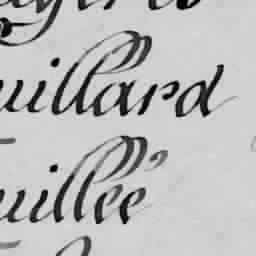 uillard
uillée